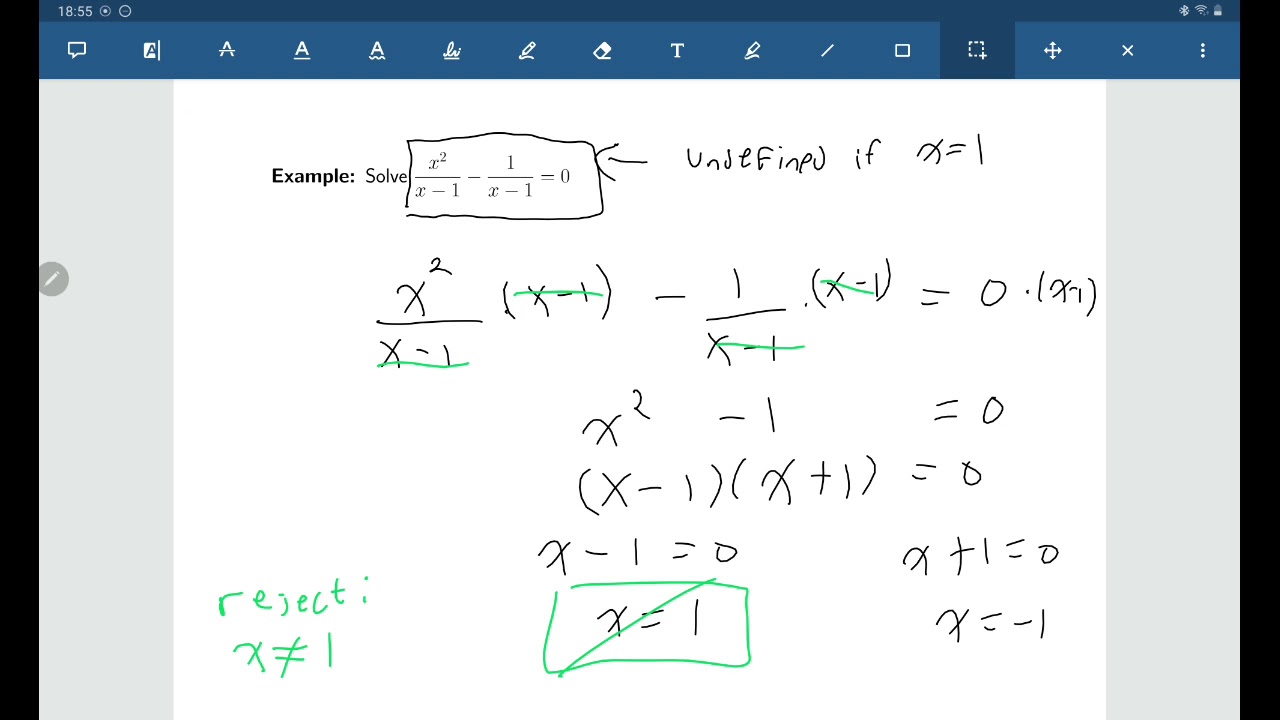 18:55
Example: Solve x²/(x − 1) − 1/(x − 1) = 0 ← undefined if x=1
x²/(x-1) (x-1) - 1/(x-1) ·(x-1) = 0 ·(x-1)
x² - 1 = 0
(x-1)(x+1) = 0
x - 1 = 0 x + 1 = 0
reject:
x = 1 x = -1
x ≠ 1